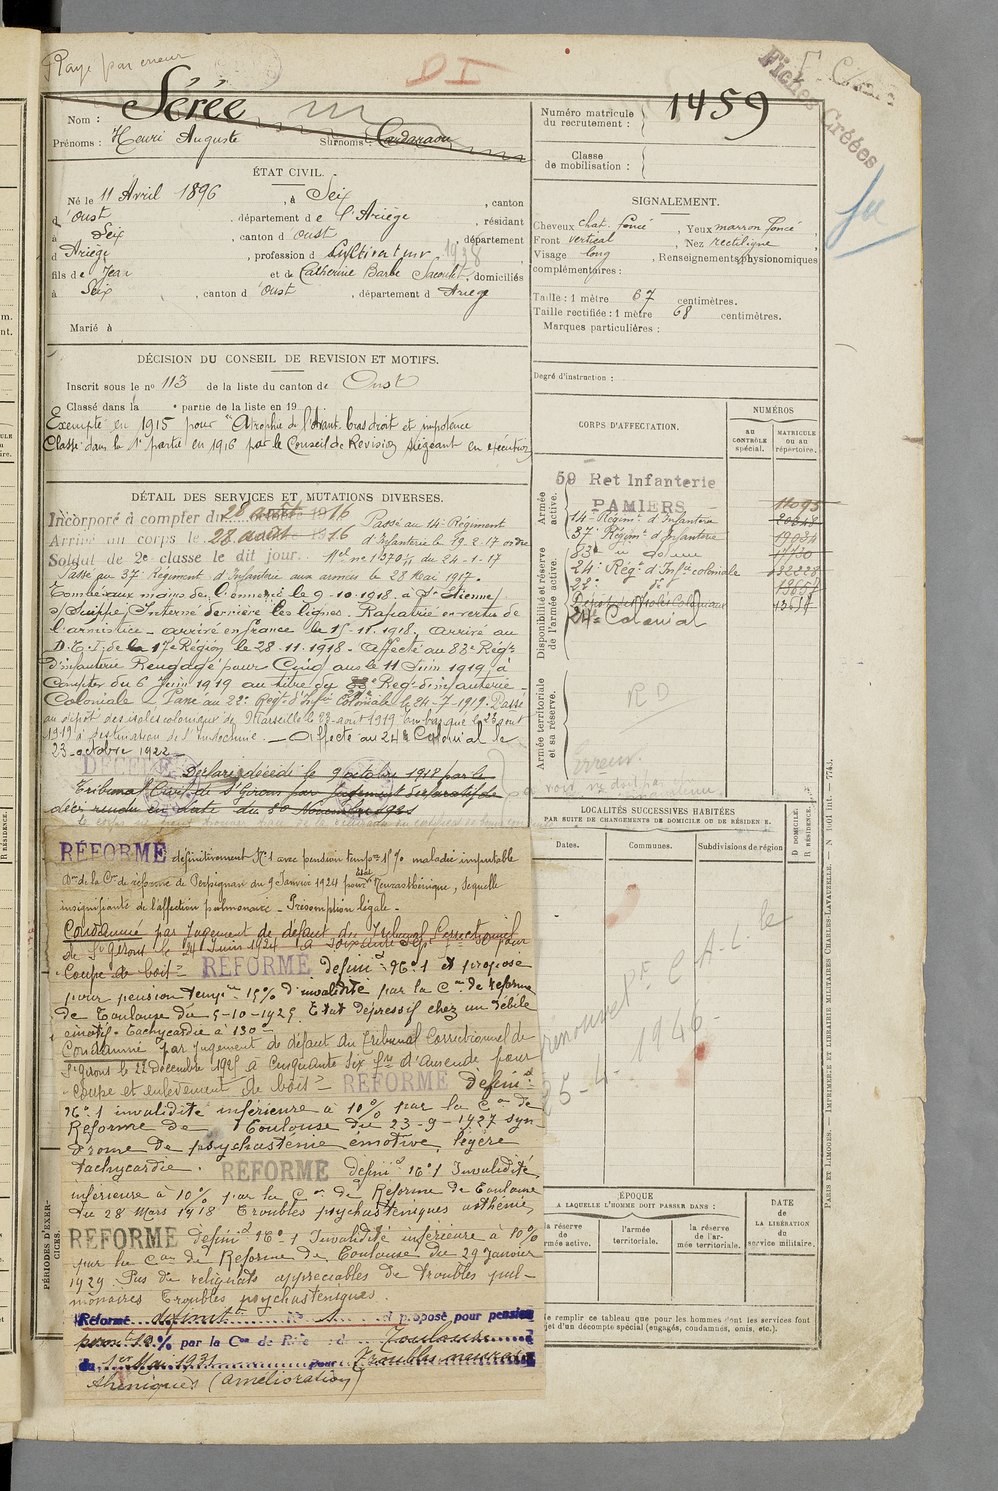 Rayé par erreur
D I
Fiches Créées
Nom : Sérée
Prénoms : Henri Auguste Surnoms :
Numéro matricule du recrutement : 1459
Classe de mobilisation :
ÉTAT CIVIL.
Né le 11 Avril 1896, à Seix, canton
d'Oust, département de l'Ariège, résidant
à Seix, canton d'Oust, département
d Ariège, profession de Cultivateur 1928
fils de Jean et de Catherine Barbe Jacoulet, domiciliés
à Seix, canton d'Oust, département d Ariège
Marié à
SIGNALEMENT.
Cheveux chat. foncé, Yeux marron foncé
Front vertical, Nez rectiligne
Visage long, Renseignements physionomiques
complémentaires :
Taille : 1 mètre 67 centimètres.
Taille rectifiée : 1 mètre 68 centimètres.
Marques particulières :
Degré d'instruction :
DÉCISION DU CONSEIL DE REVISION ET MOTIFS.
Inscrit sous le no 113 de la liste du canton de Oust
Classé dans la partie de la liste en 19
Exempté en 1915 pour "Atrophie de l'Avant-bras droit et impotence
Classé dans la 1e partie en 1916 par le Conseil de Revision siégeant en exécution
DÉTAIL DES SERVICES ET MUTATIONS DIVERSES.
Incorporé à compter du 28 août 1916 Passé au 14e Régiment
Arrivé au corps le 28 août 1916 d'Infanterie le 19.2.17 ordre
Soldat de 2e classe le dit jour. Mel no 1370 1/11 du 24-1-17
Passé au 37e Régiment d'Infanterie aux armées le 28 Mai 1917.
Tombé aux mains de l'ennemi le 9-10-1918. à St Etienne
s/Suippe, Interné derrière les lignes. Rapatrié en vertu de
l'armistice - arrivé en france le 15-11-1918, arrivé au
D.T.I. de la 17e Région le 28-11-1918. Affecté au 83e Régt
d'infanterie Rengagé pour Cinq ans le 11 Juin 1919 à
compter du 6 Juin 1919 au titre du Regt d'infanterie
Coloniale Passé au 22e Régt d'Infie Coloniale le 24-7-1919. Passé
au dépôt des isolés coloniaux de Marseille le 23 aout 1919 Embarqué le 23 aout
1919 à destination de l'Indochine. — Affecté au 24e Colonial le
23-octobre 1922
DÉCÉDÉ Déclaré décédé le 9 octobre 1918 par le
Tribunal Civil de St Girons par Jugement déclaratif de
décès rendu en date du 30 Novembre 1921
CORPS D'AFFECTATION.
NUMÉROS
au CONTRÔLE spécial.
MATRICULE ou au répertoire.
Armée active.
59 Ret Infanterie
PAMIERS 11095
14e Régimt d'Infanterie
37e Régimt d'Infanterie 19034
83e " d'Infanterie
24e Régt d'Infie coloniale
22e do
Dépôt des Isolés Coloniaux
24e Colonial
Disponibilité et réserve de l'armée active.
Armée territoriale et sa réserve.
R D
Erreur.
LOCALITÉS SUCCESSIVES HABITÉES
PAR SUITE DE CHANGEMENTS DE DOMICILE OU DE RÉSIDENCE.
Dates. Communes. Subdivisions de région
D DOMICILE. R RÉSIDENCE.
RÉFORMÉ définitivement No 1 avec pension tempre 15% maladie imputable
Don de la Con de réforme de Perpignan du 9 Janvier 1924 pour Etat Neurasthénique, séquelle
insignifiante de l'affection pulmonaire - Présomption légale -
Condamné par Jugement de défaut du Tribunal Correctionnel
de St Girons le 24 Juin 1924 à Soixante Sept frs 50 pour
"Coupe de bois" REFORMÉ Définit No 1 et proposé
pour pension tempre 15% d'invalidité par la Con de réforme
de Toulouse du 5-10-1925 Etat dépressif chez un débile
émotif. Tachycardie à 130
Condamné par Jugement de défaut du Tribunal Correctionnel de
St Girons le 22 Décembre 1925 à Cinquante Six frs d'Amende pour
"coupe et enlèvement de bois" REFORMÉ Définit
No 1 invalidité inférieure à 10% par la Con de
Réforme de Toulouse du 23-9-1927 syn-
drome de psychasténie émotive, légère
tachycardie. REFORMÉ Définit No 1 Invalidité
inférieure à 10% par la Con de Réforme de Toulouse
du 28 Mars 1918 Troubles psychasténiques asthénie
REFORMÉ Définit No 1 Invalidité inférieure à 10%
par la Con de Réforme de Toulouse du 29 Janvier
1929 Pas de reliquats appréciables de troubles pul-
monaires Troubles psychasténiques.
Réformé définit No 1 et proposé pour pension
10% par la Con de Rme de Toulouse
du 1er Mai 1931 pour Troubles neuras-
théniques (amélioration)
renouvel Ct C A. L. le
25-4-1946-
ÉPOQUE
A LAQUELLE L'HOMME DOIT PASSER DANS :
la réserve de l'armée active.
l'armée territoriale.
la réserve de l'armée territoriale.
DATE de LA LIBÉRATION du service militaire.
Ne remplir ce tableau que pour les hommes dont les services font
l'objet d'un décompte spécial (engagés, condamnés, omis, etc.).
PÉRIODES D'EXERCICES.
PARIS ET LIMOGES. — IMPRIMERIE ET LIBRAIRIE MILITAIRES CHARLES-LAVAUZELLE. — N 1001 int. — 7743.